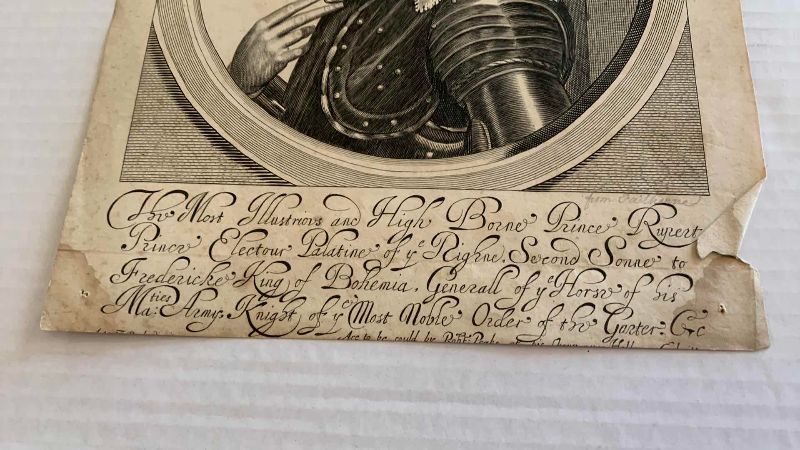 from Faithorne
The Most Illustrious and High Borne Prince Rupert
Prince Electour Palatine of yᵉ Rhine, Second Sonne to
Fredericke King of Bohemia, Generall of yᵉ Horse of his
Maᵗⁱᵉˢ Army, Knight of yᵉ Most Noble Order of the Garter. &c
Are to be sould by Robt: Peak